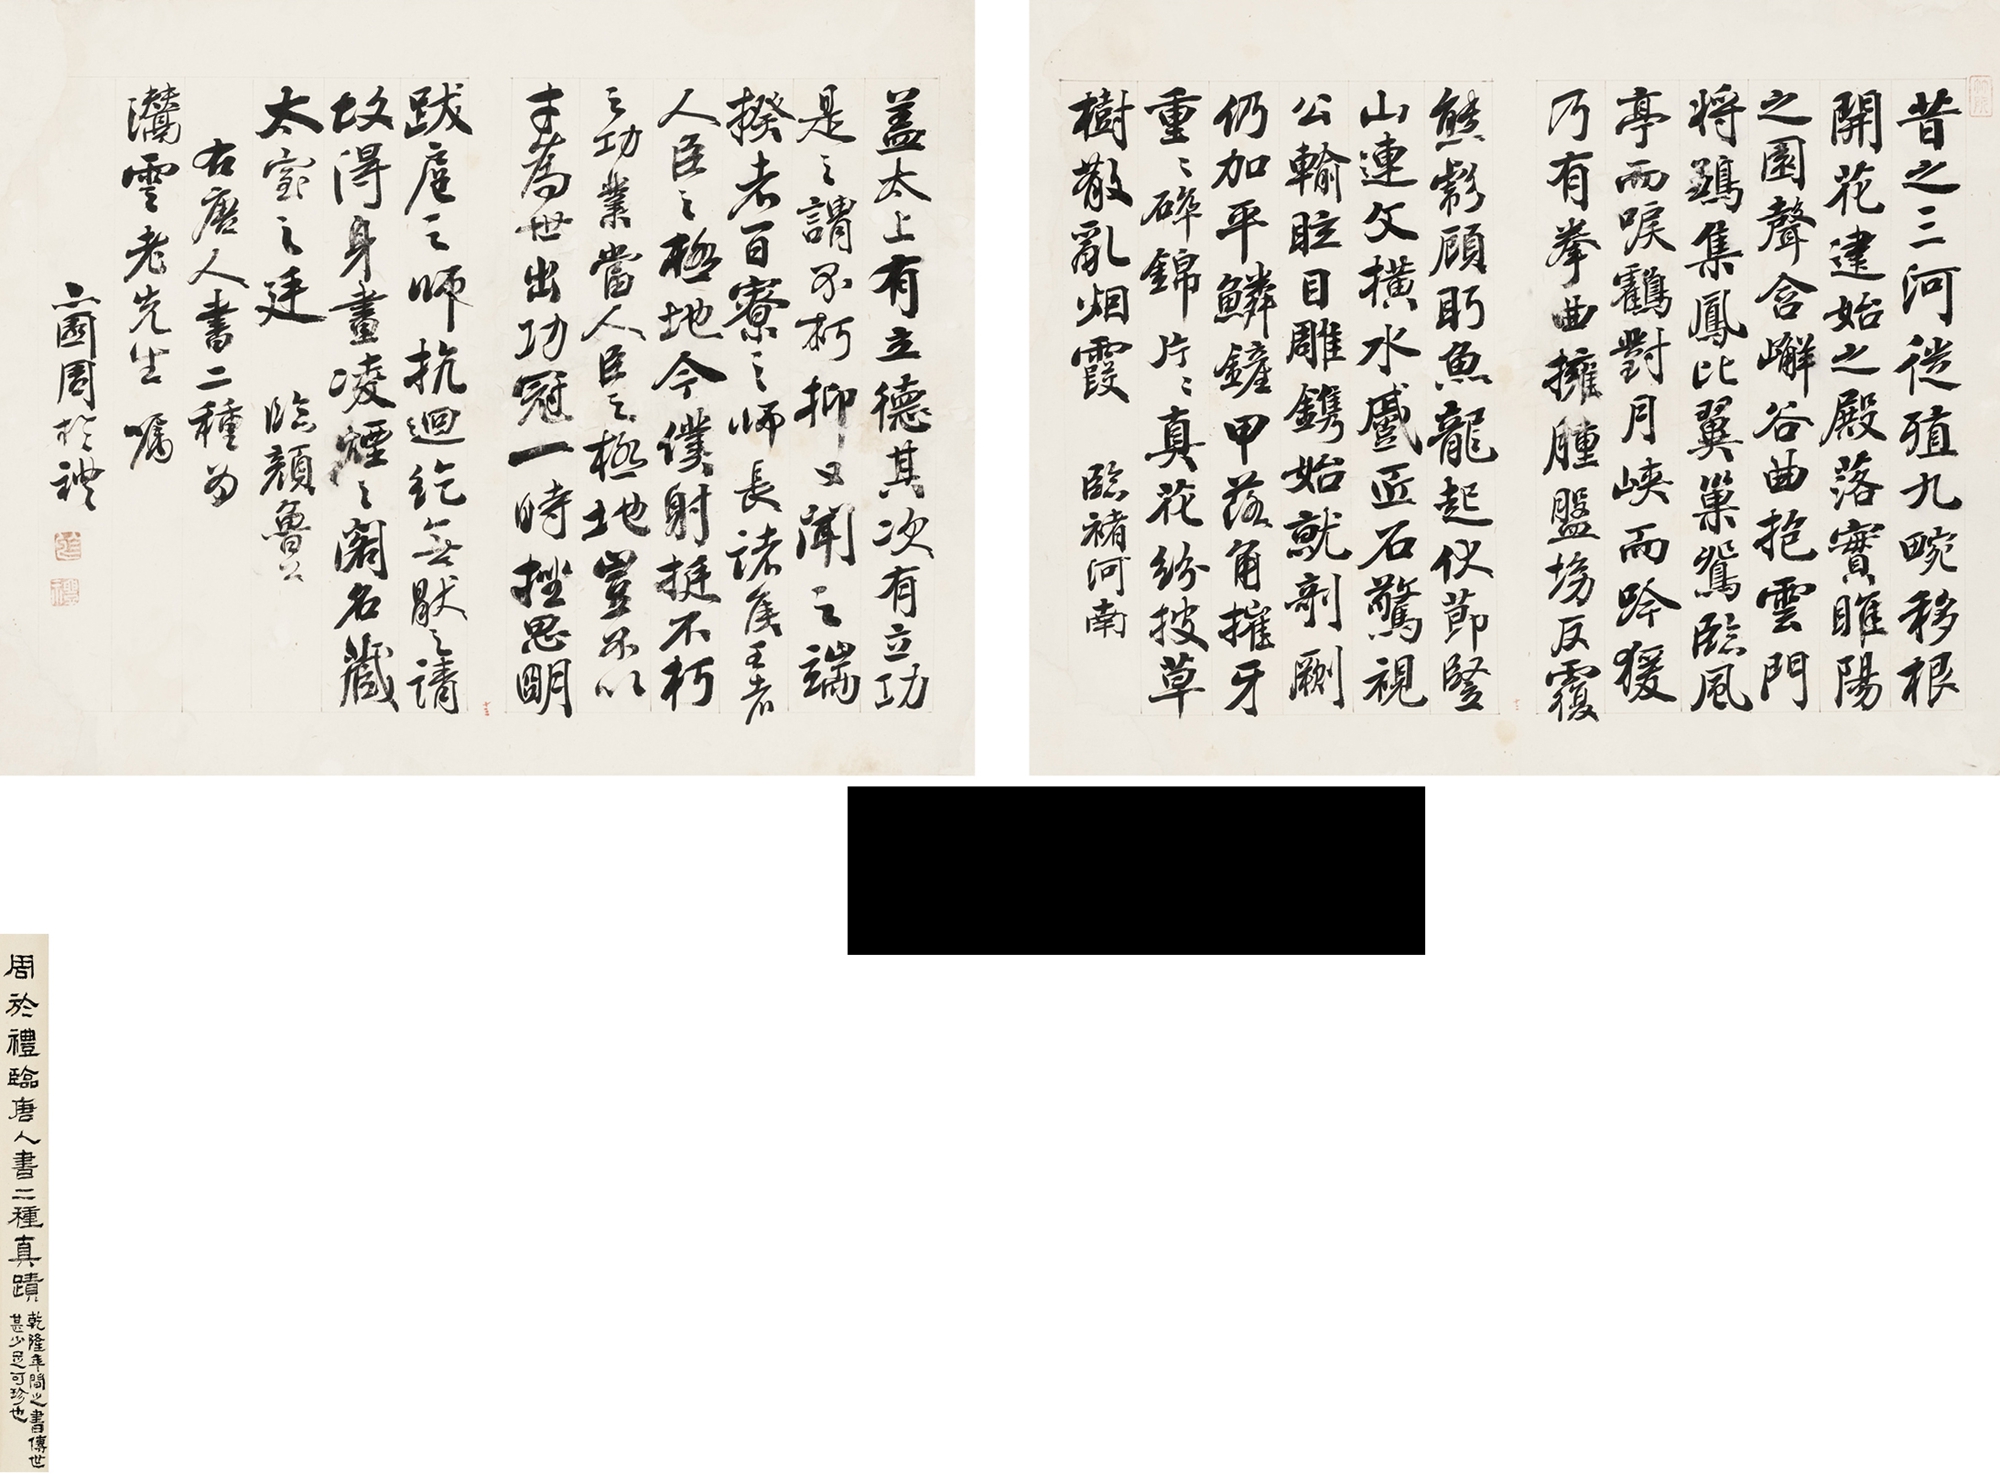 昔之三河徙殖九畹移根
開花建始之殿落實睢陽
之園聲含嶰谷曲抱雲門
将鶵集鳳比翼巢鴛臨風
亭而唳鶴對月峡而吟猨
乃有拳曲擁腫盤坳反覆
熊彪顧盼魚龍起伏節竪
山連文横水蹙匠石驚視
公輸眩目雕鐫始就剞劂
仍加平鱗鏟甲落角摧牙
重〻碎錦片〻真花紛披草
樹散亂烟霞 臨褚河南
盖太上有立德其次有立功
是之謂不朽抑又聞之端
揆者百寮之师長諸侯王者
人臣之極地今僕射挺不朽
之功業當人臣之極地豈不以
才為世出功冠一時挫思明
跋扈之师抗迴紇無猒之請
故得身畫凌煙之閣名藏
太室之廷 臨顏魯公
右唐人書二種为
雲老先生 嘱
周於禮
周於禮臨唐人書二種真蹟
乾隆年間之書傳世
甚少足可珍也